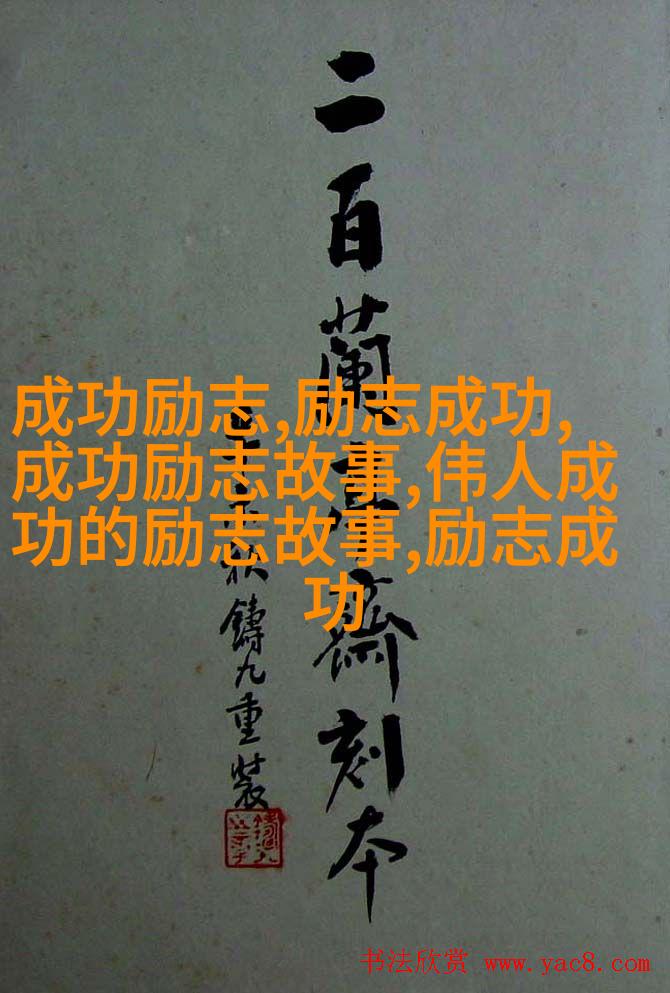 二百蘭亭齋刻本
秋鑄九重裝
成功励志,励志成功,
成功励志故事,伟人成
功的励志故事,励志成
功
书法欣赏 www.yac8.com